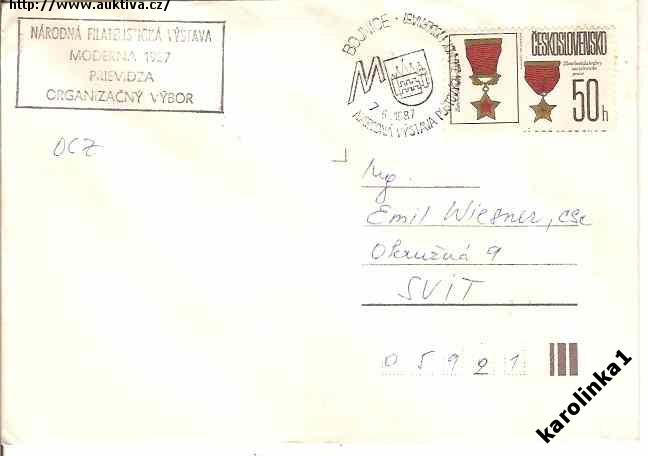 http://www.auktiva.cz/
NÁRODNÁ FILATELISTICKÁ VÝSTAVA
MODERNA 1987
PRIEVIDZA
ORGANIZAČNÝ VÝBOR
BOJNICE
7.6.1987
NÁRODNÁ VÝSTAVA
ČESKOSLOVENSKO
50h
OCZ
Ing.
Emil Wiesner, CSc
Okružná 9
SVIT
05921
karolinka1